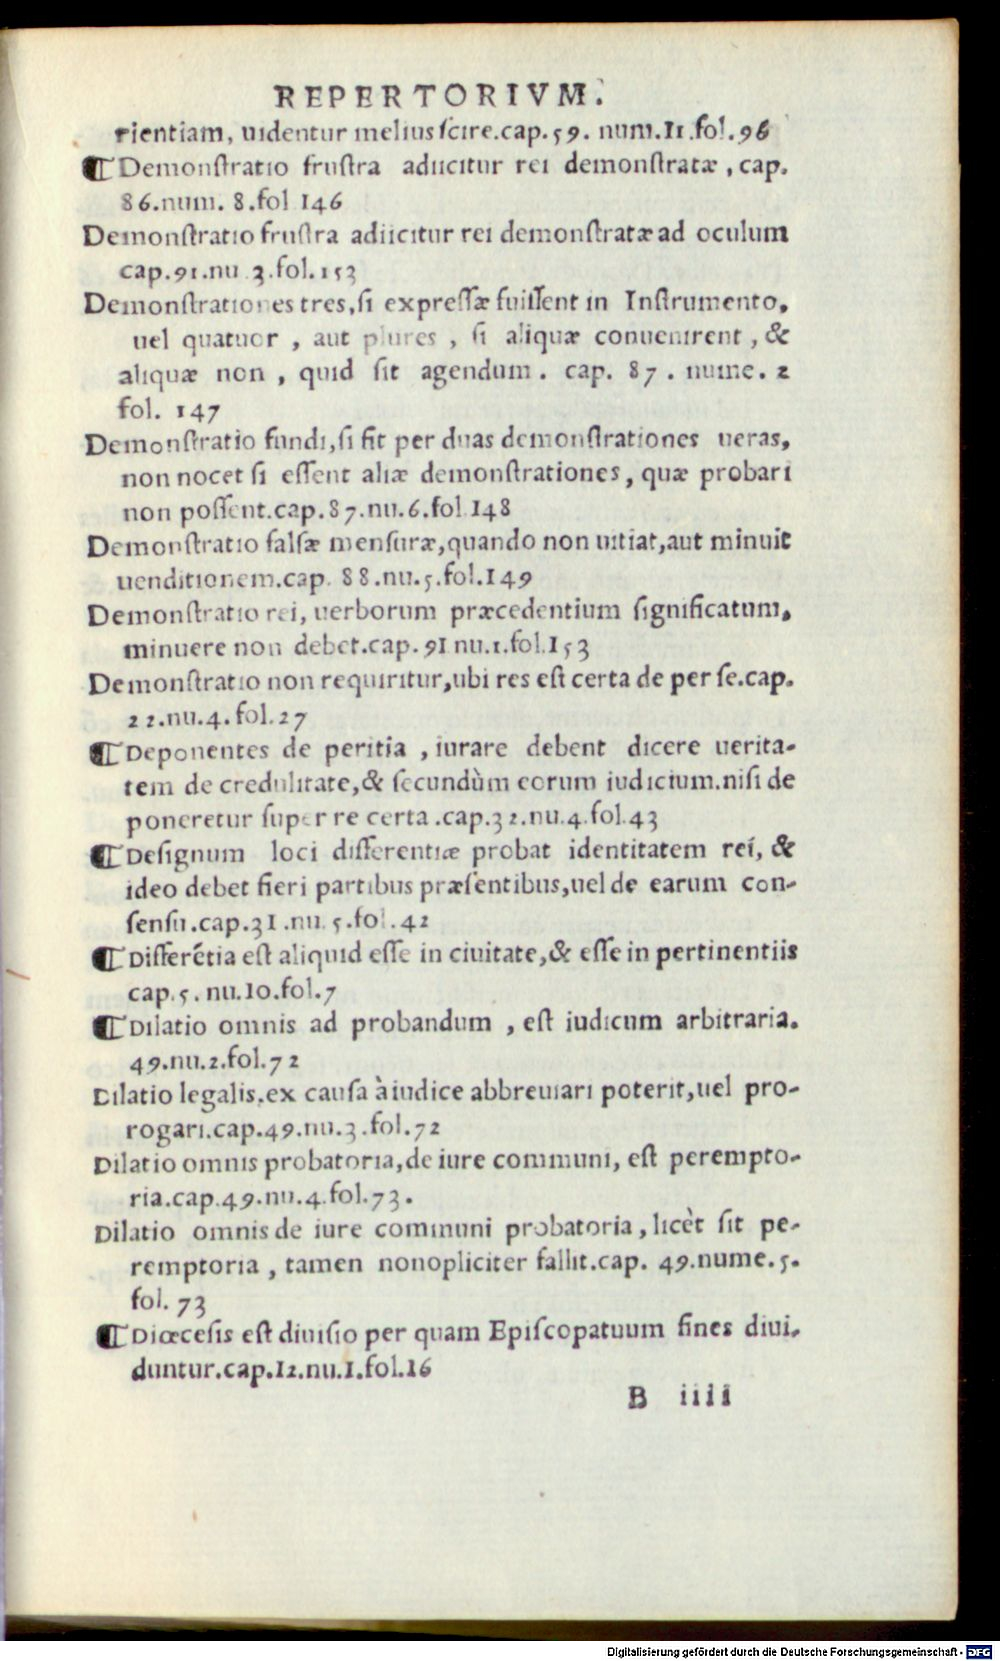 REPERTORIVM.
rientiam, uidentur melius scire.cap.59. num.11.fol.96
¶ Demonstratio frustra adiicitur rei demonstratæ, cap.
86.num. 8.fol 146
Demonstratio frustra adiicitur rei demonstratæ ad oculum
cap.91.nu 3.fol.153
Demonstrationes tres,si expressæ fuissent in Instrumento,
uel quatuor , aut plures , si aliquæ conuenirent , &
aliquæ non , quid sit agendum . cap. 87 . nume. 2
fol. 147
Demonstratio fundi,si fit per duas demonstrationes ueras,
non nocet si essent aliæ demonstrationes, quæ probari
non possent.cap.87.nu.6.fol.148
Demonstratio falsæ mensuræ,quando non uitiat,aut minuit
uenditionem.cap. 88.nu.5.fol.149
Demonstratio rei, uerborum præcedentium significatum,
minuere non debet.cap.91 nu.1.fol.153
Demonstratio non requiritur,ubi res est certa de per se.cap.
22.nu.4.fol.27
¶ Deponentes de peritia , iurare debent dicere uerita-
tem de credulitate,& secundùm eorum iudicium.nisi de
poneretur super re certa .cap.32.nu.4.fol.43
¶ Designum loci differentiæ probat identitatem rei, &
ideo debet fieri partibus præsentibus,uel de earum con-
sensu.cap.31.nu.5.fol.42
¶ Differẽtia est aliquid esse in ciuitate,& esse in pertinentiis
cap.5. nu.10.fol.7
¶ Dilatio omnis ad probandum , est iudicum arbitraria.
49.nu.2.fol.72
Dilatio legalis,ex causa à iudice abbreuiari poterit,uel pro-
rogari.cap.49.nu.3.fol.72
Dilatio omnis probatoria,de iure communi, est perempto-
ria.cap.49.nu.4.fol.73.
Dilatio omnis de iure communi probatoria, licèt sit pe-
remptoria , tamen nonopliciter fallit.cap. 49.nume.5.
fol. 73
¶ Diœcesis est diuisio per quam Episcopatuum fines diui.
duntur.cap.12.nu.1.fol.16
B iiii
Digitalisierung gefördert durch die Deutsche Forschungsgemeinschaft - DFG